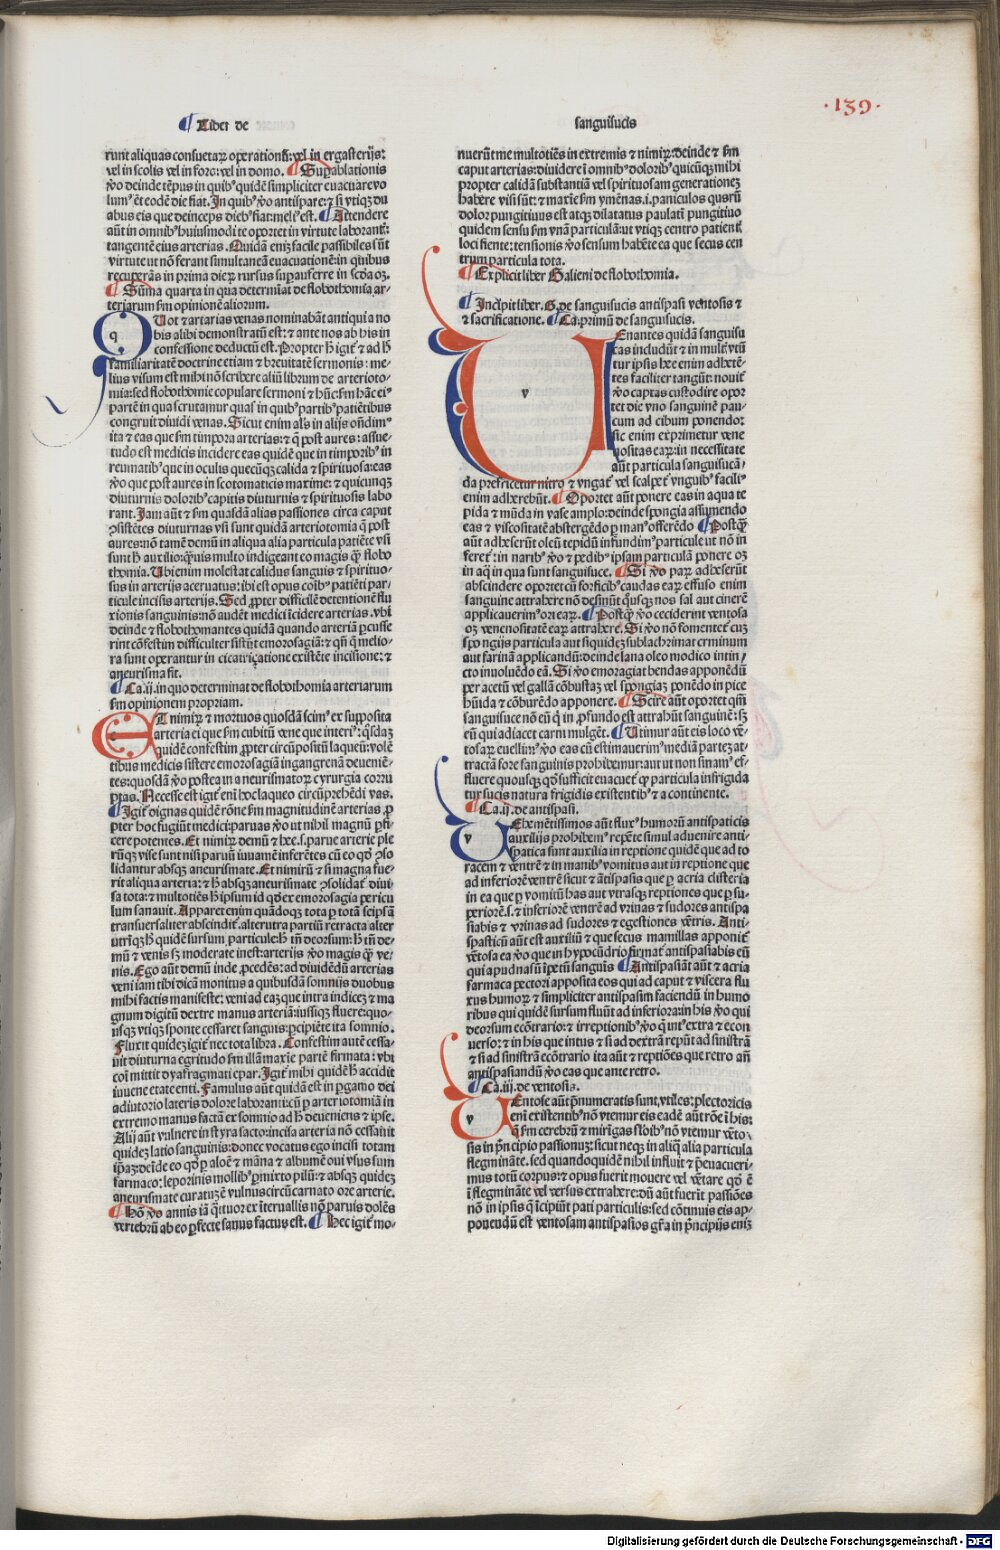 ·139·
¶ Liber de
sanguisucis
runt aliquas consuetaꝝ operationū: vel in ergasterijs:
vel in scolis vel in foro: vel in domo. ¶ Supablationis
ṽo deinde tēpus in quibꝰ quidē simpliciter euacuare vo
lumꝰ et eodē die fiat. In quibꝰ ṽo antispare: et si vtiqꝫ du
abus eis que deinceps diebꝰ fiat: meliꝰ est. ¶ Attendere
aūt in omnibꝰ huiusmodi te oportet in virtute laborant:
tangentē eius arterias. Quidā enim facile passibiles sūt
virtute ut nō ferant simultaneā euacuationē: in quibus
recuperās in prima dieꝝ rursus supauferre in scd̄a oꝫ.
¶ Sūma quarta in qua determinat de flobothomia ar-
teriarum fm opinionē aliorum.
Quot et artarias venas nominabāt antiqui a no
bis alibi demonstratū est: et ante nos ab his in
confessione deductū est. Propter h̄ igit et ad h̄
familiaritatē doctrine etiam et breuitatē sermonis: me-
lius visum est mihi nō scribere aliū librum de arterioto-
mia: sed flobothomie copulare sermoni et hūc: fm hāc eiꝰ
partē in qua scrutamur quas in quibꝰ partibꝰ patiētibus
congruit diuidi venas. Sicut enim alꝰs in alijs oñdimꝰ
ita et eas que fm timpora arterias: et q̄ post aures: assue-
tudo est medicis incidere eas quidē que in timporibꝰ in
reumatibꝰ que in oculis quecūqꝫ calida et spirituosa: eas
ṽo que post aures in scotomaticis maxime: et quicunqꝫ
diuturnis doloribꝰ capitis diuturnis et spirituosis labo
rant. Jam aūt et fm quasdā alias passiones circa caput
ꝯsistētes diuturnas vsi sunt quidā arteriotomia q̄ post
aures: nō tamē demū in aliqua alia particula patiēte vsi
sunt h̄ auxilio: q̄uis multo indigeant eo magis q̄ flobo
thomia. Ubi enim molestat calidus sanguis et spirituo-
sus in arterijs aceruatus: ibi est opus cōibꝰ patiēti par-
ticule incisis arterijs. Sed ꝓpter difficilē detentionē flu
xionis sanguinis: nō audēt medici īcidere arterias. vbi
deinde et flobothomantes quidā quando arteriā ꝑcusse
rint cōfestim difficulter sistūt emorosagiā: et qn̄ q̄ melio-
ra sunt operantur in cicatriçatione existēte incisione: et
aneurisma fit.
¶ Ca.ii. in quo determinat de flobothomia arteriarum
fm opinionem propriam.
Et nimiꝝ et mortuos quosdā scimꝰ ex supposita
arteria ei que fm cubitū vene que interiꝰ: q̄sdaꝫ
quidē confestim ꝓpter circūpositū laqueū: volē
tibus medicis sistere emorosagiā in gangrenā deueniē-
tes: quosdā ṽo postea in aneurismatoꝝ cyrurgia corru
ptas. Necesse est igit enī hoc laqueo circūprehēdi vas.
¶ Igit dignas quidē rōne fm magnitudinē arterias. ꝓ
pter hoc fugiūt medici: paruas ṽo ut nihil magnū ꝑfi-
cere potentes. Et nimiꝝ demū et hee.s. parue arterie ple
rūqꝫ vise sunt nisi paruū iuuamē inferētes cū eo qd̄ ꝯso
lidantur absqꝫ aneurismate. Et nimirū et si magna fue-
rit aliqua arteria: et h̄ absqꝫ aneurismate ꝯsolidat diui-
sa tota: et multotiēs h̄ ipsum id qd̄ ex emorosagia pericu
lum sanauit. Apparet enim quādoqꝫ tota ꝑ totā seipsā
transuersaliter abscindit. alterutra partiū retracta alter
utriqꝫ h̄ quidē sursum particule: h̄ in̄ deorsum: h̄ in̄ de-
mū et venis sꝫ moderate inest: arterijs ṽo magis q̄ ve-
nis. Ego aūt demū inde ꝓcedēs: ad diuidēdū arterias
veni iam tibi dicā monitus a quibusdā somniis duobus
mihi factis manifeste: veni ad eas que intra indiceꝫ et ma
gnum digitū dextre manus arteriā: iussiqꝫ fluere: quo-
usqꝫ vtiqꝫ sponte cessaret sanguis: ꝑcipiēte ita somnio.
Fluxit quideꝫ igit nec tota libra. Confestim autē cessa-
uit diuturna egritudo fm illā maxīe partē firmata: vbi
coī mittit dyafragmati epar. Igit mihi quidē h̄ accidit
iuuene etate enti. Famulus aūt quidā est in ꝑgamo dei
adiutorio lateris dolore laborans: cū ꝑ arteriotomiā in
extremo manus factā ex somnio ad h̄ deueniens et ipse.
Alij aūt vulnere in styra facto: incisa arteria nō cessauit
quideꝫ latio sanguinis: donec vocatus ego incisi totam
ip̄aꝫ: deīde eo qd̄ ꝑ aloē et mānā et albumē oui vsus sum
farmaco: leporinis mollibꝰ ꝑmixto pilis: et absqꝫ quideꝫ
aneurismate curatū: et vulnus circū carnato ore arterie.
¶ Hō ṽo annis iā q̄ttuor ex īteruallis nō paruis dolēs
vertebrū ab eo ꝑfecte sanus factus est. ¶ Hec igit mo-
nuerūt me multotiēs in extremis et nimiꝝ: deinde et fm
caput arterias: diuidere ī omnibꝰ doloribꝰ quicūqꝫ mihi
propter calidā substantiā vel spirituosam generationeꝫ
habere visi sūt: et maxīe fm ymenas.i. paniculos quorū
dolor pungitiuus est atqꝫ dilatatus paulatī pungitiuo
quidem sensu fm vnā particulā: ut vtiqꝫ centro patienti
loci fiente: tensionis ṽo sensum habēte ea que secus cen
trum particula tota.
¶ Explicit liber Galieni de flobothomia.
¶ Incipit liber. G. de sanguisucis antispasi ventosis et
et sacrificatione. ¶ Ca. primū de sanguisucis.
Uenantes quidā sanguisu
cas includūt et in multꝰ vtū
tur ipsis hee enim adherē-
tes faciliter tangūt: nouit
ṽo captas custodire opor
tet die vno sanguinē pau-
cum ad cibum ponendo:
sic enim exprimetur vene
nositas eaꝝ: in necessitate
aūt particula sanguisucā-
da prefricetur nitro et vngat vel scalpet vnguibꝰ faciliꝰ
enim adherebūt. ¶ Oportet aūt ponere eas in aqua te
pida et mūda in vase amplo: deinde spongia assumendo
eas et viscositatē abstergēdo ꝑ manꝰ offerēdo ¶ Postq̄
aūt adheserūt oleū tepidū infundimꝰ particule ut nō in
feret: in naribꝰ ṽo et pedibꝰ ipsam particulā ponere oꝫ
in aq̄ in qua sunt sanguisuce. ¶ Si ṽo paꝝ adheserūt
abscindere oportet cū forficibꝰ caudas eaꝝ effuso enim
sanguine attrahere nō desinūt q̄usqꝫ nos sal aut cinerē
applicauerimꝰ ori eaꝝ. ¶ Postq̄ ṽo ceciderint ventosa
oꝫ venenositatē eaꝝ attrahere. Si ṽo nō fomentet cuꝫ
spongijs particula aut si quidez sublachrimat erminum
aut farinā applicandū: deinde lana oleo modico intin-
cto inuoluēdo eā. Si ṽo emoragiat hendas apponēdū
per acetū vel gallā cōbustaꝫ vel spongiaꝫ ponēdo in pice
hūida et cōburēdo apponere. ¶ Scire aūt oportet qm̄
sanguisuce nō eū q̄ in ꝓfundo est attrahūt sanguinē: sꝫ
eū qui adiacet carni mulgēt. ¶ Utimur aūt eis loco vē-
tosaꝝ euellimꝰ ṽo eas cū estimauerimꝰ mediā parteꝫ at-
tractā fore sanguinis prohibemur: aut ut non sinamꝰ ef-
fluere quousqꝫ qd̄ sufficit euacuet qꝛ particula infrigida
tur sucis natura frigidis existentibꝰ et a continente.
¶ Ca.ij. de antispasi.
Uehemētissimos aūt fluxꝰ humorū antispaticis
auxilijs prohibemꝰ repēte simul aduenire anti-
spatica sunt auxilia in reptione quidē que ad to
racem et ventrē et in manibꝰ vomitus aut in reptione que
ad inferiorē ventrē sicut et ātispasis que ꝑ acria clisteria
in ea que ꝑ vomitū has aut vtrasqꝫ reptiones que ꝑ su-
periorē.s. et inferiorē ventrē ad vrinas et sudores antispa
siabis et vrinas ad sudores et egestiones vētris. Anti-
spasticū aūt est auxiliū et que secus mamillas apponit
vētosa ea ṽo que in hypocūdrio firmat antispasiabis eū
qui apud nasū īpetū sanguis ¶ Antispasiāt aūt et acria
farmaca pectori apposita eos qui ad caput et viscera flu
xus humoꝝ et simpliciter antispasim faciendū in humo
ribus qui quidē sursum fluūt ad inferiora: in his ṽo qui
deorsum ecōtrario: et irreptionibꝰ ṽo q̄ intꝰ extra et econ
uerso: et in his que intus et si ad dextrā repūt ad sinistrā
et si ad sinistrā ecōtrario ita aūt et reptiōes que retro añ
antispasiandū ṽo eas que ante retro.
¶ Ca.iij. de ventosis.
Uentose aūt p̄numeratis sunt, vtiles: plectoricis
enī existentibꝰ nō vtemur eis eadē aūt rōe ī his:
q̄ fm cerebrū et mirīgas flōibꝰ nō vtemur vēto-
sis in p̄ncipio passionuꝫ: sicut neqꝫ in aliq̄ alia particula
flegmināte. sed quando quidē nihil influit et p̄euacueri-
mus totū corpus: et opus fuerit mouere vel vētare qd̄ ē
ī flegmināte vel versus extrahere: dū aūt fuerit passiōes
nō in ipsis q̄ īcipiūt pati particulis: sed cōtinuis eis ap-
ponendū est ventosam antispasios gr̄a in p̄ncipijs eniꝫ
Digitalisierung gefördert durch die Deutsche Forschungsgemeinschaft - DFG